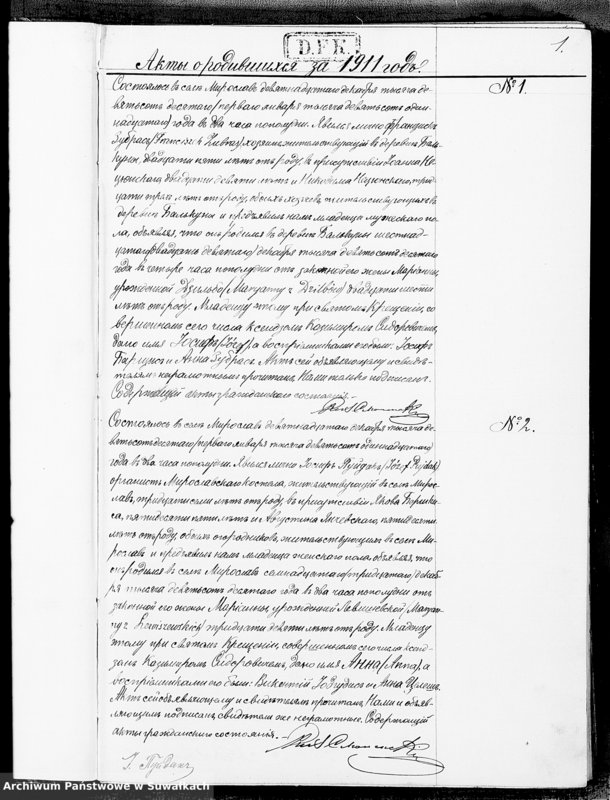 D.F.K.
1.
Акты о родившихся за 1911 годъ.
№ 1.
Состоялось въ селѣ Мирославѣ девятнадцатаго декабря тысяча де-
вятьсотъ десятаго /перваго января тысяча девятьсотъ один-
надцатаго/ года въ два часа пополудни. Явился лично Францискъ
Зубрасъ /Franciszek /, хозяинъ жительствующій въ деревнѣ Баль-
, двадцати пяти лѣтъ отъ роду, въ присутствіи
двадцати девяти лѣтъ и Никодима трид-
цати трехъ лѣтъ отъ роду, обоихъ жительствующихъ въ
деревнѣ и предъявилъ намъ младенца мужескаго по-
ла, объявляя, что онъ родился въ деревнѣ шестнад-
цатаго /двадцать девятаго/ декабря тысяча девятьсотъ десятаго
года въ четыре часа пополудни отъ законной его жены Маріанны,
урожденной /Maryanny z /, двадцати шести
лѣтъ отъ роду. Младенцу этому при святомъ Крещеніи, со-
вершенномъ сего числа ксендзомъ Казимиромъ Сидоровичемъ,
дано имя Іосифъ /Józef/, а воспріемниками его были: Іосифъ
и Анна Зубрасъ. Актъ сей объявляющему и свидѣ-
телямъ неграмотнымъ прочитанъ, Нами только подписанъ.
Содержащій акты гражданскаго состоянія.
№ 2.
Состоялось въ селѣ Мирославѣ девятнадцатаго декабря тысяча де-
вятьсотъ десятаго /перваго января тысяча девятьсотъ одиннадцатаго/
года въ два часа пополудни. Явился лично Іосифъ Руйдакъ /Józef Rujdak/
органистъ Мирославскаго костела, жительствующій въ селѣ Миро-
славѣ, тридцати лѣтъ отъ роду, въ присутствіи Якова
пятидесяти пяти лѣтъ и Августина
лѣтъ отъ роду, обоихъ огородниковъ, жительствующихъ въ селѣ Ми-
рославѣ и предъявилъ намъ младенца женскаго пола, объявляя, что
онъ родился въ селѣ Мирославѣ семнадцатаго /тридцатаго/ декаб-
ря тысяча девятьсотъ десятаго года въ два часа пополудни отъ
законной его жены Маріанны, урожденной Левишевской /Maryan-
ny z Lewiszewskich/ тридцати девяти лѣтъ отъ роду. Младенцу
этому при святомъ Крещеніи, совершенномъ сего числа ксенд-
зомъ Казимиромъ Сидоровичемъ, дано имя Анна /Anna/, а
воспріемниками его были: Викентій и Анна
Актъ сей объявляющему и свидѣтелямъ прочитанъ, Нами и объяв-
ляющимъ подписанъ, свидѣтели же неграмотные. Содержащій
акты гражданскаго состоянія.
І. Руйдакъ
Archiwum Państwowe w Suwałkach